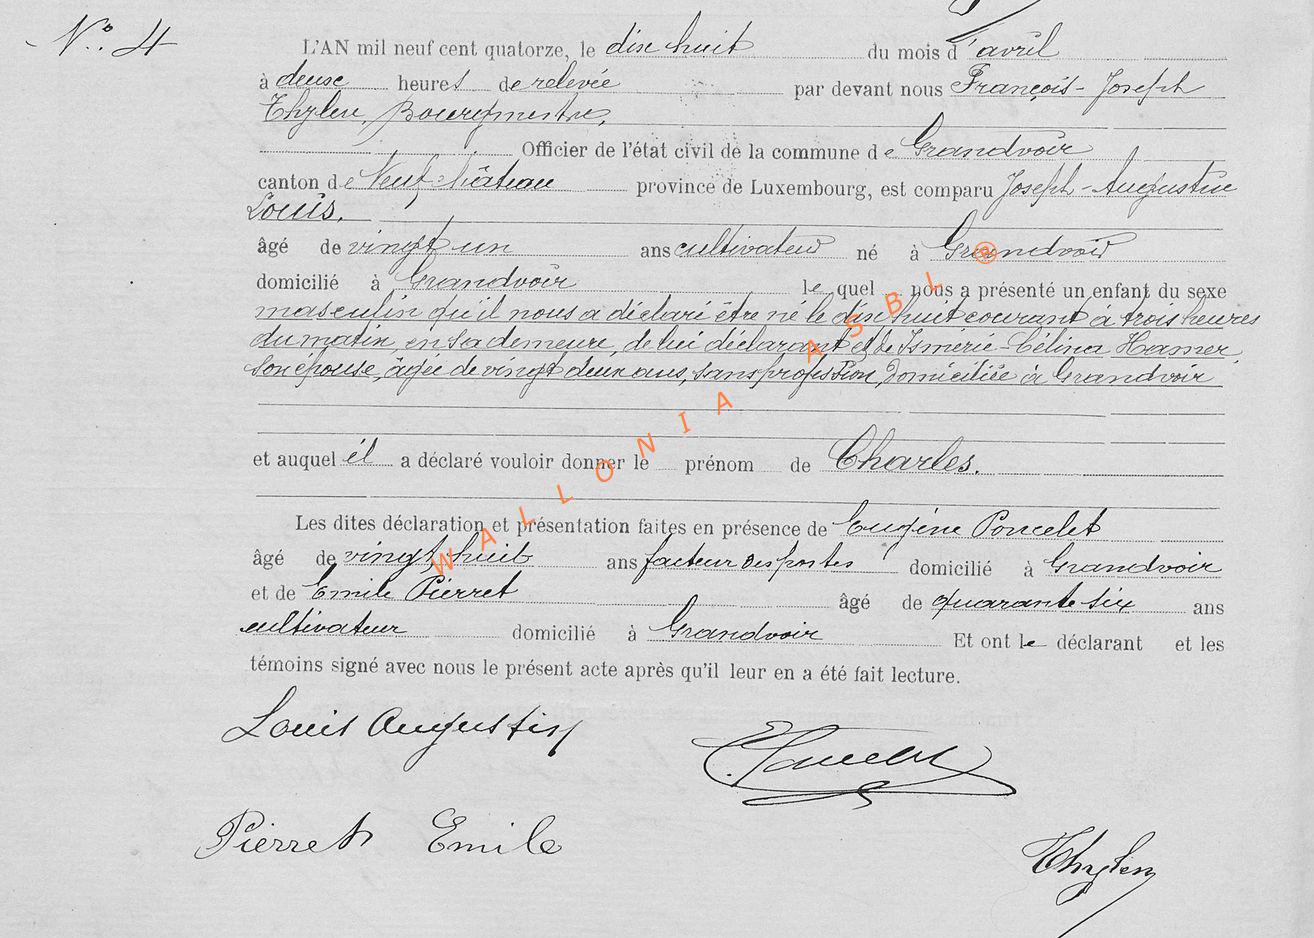 N° 4
L'AN mil neuf cent quatorze, le dix huit du mois d'avril
à deux heures de relevée par devant nous François-Joseph
Thylen, Bourgmestre,
Officier de l'état civil de la commune de Grandvoir
canton de Neufchâteau province de Luxembourg, est comparu Joseph-Augustin
Louis,
âgé de vingt un ans cultivateur né à Grandvoir
domicilié à Grandvoir le quel nous a présenté un enfant du sexe
masculin qu'il nous a déclaré être né le dix huit courant à trois heures
du matin, en sa demeure, de lui déclarant et de Ismérie-Célina Hamer,
son épouse, âgée de vingt deux ans, sans profession, domiciliée à Grandvoir
et auquel il a déclaré vouloir donner le prénom de Charles.
Les dites déclaration et présentation faites en présence de Eugène Poncelet
âgé de vingt huit ans facteur des postes domicilié à Grandvoir
et de Emile Pierret âgé de quarante six ans
cultivateur domicilié à Grandvoir Et ont le déclarant et les
témoins signé avec nous le présent acte après qu'il leur en a été fait lecture.
Louis Augustin
E. Poncelet
Pierret Emile
Thylen
WALLONIA ASBL ®